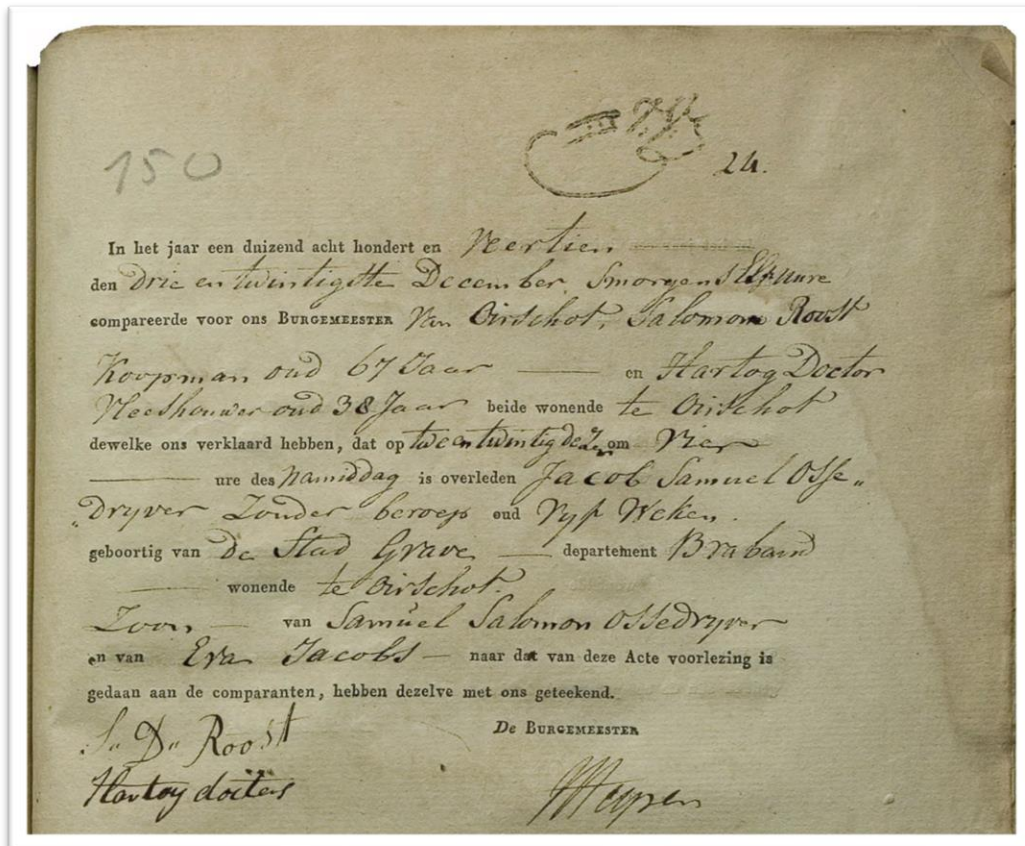 150
24.
In het jaar een duizend acht hondert en Veertien
den Drie en twintigste December, Smorgens Elf uure
compareerde voor ons BURGEMEESTER Van Oirschot, Salomon Roost
Koopman oud 67 Jaar en Hartog Doctor
Vleeshouwer oud 38 Jaar beide wonende te Oirschot
dewelke ons verklaard hebben, dat op twe en twintig dezer om Vier
ure des Namiddag is overleden Jacob Samuel Osse„
„Dryver Zonder beroep oud Vyf Weken.
geboortig van De Stad Grave departement Braband
wonende te Oirschot.
Zoon van Samuel Salomon Ossedryver
en van Eva Jacobs naar dat van deze Acte voorlezing is
gedaan aan de comparanten, hebben dezelve met ons geteekend.
De BURGEMEESTER
S„ D„ Roost
Hartog